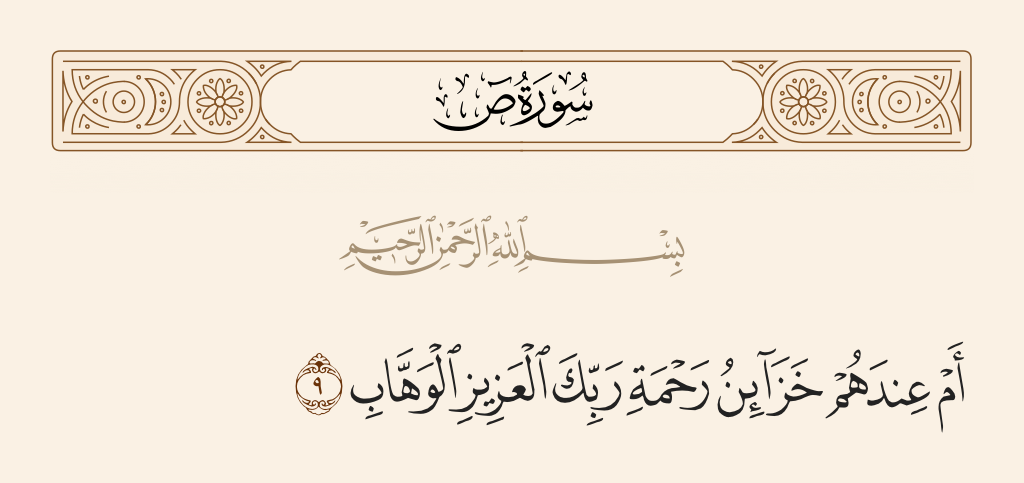 سُورَةُ صٓ
بِسْمِ ٱللَّهِ ٱلرَّحْمَٰنِ ٱلرَّحِيمِ
أَمْ عِندَهُمْ خَزَآئِنُ رَحْمَةِ رَبِّكَ ٱلْعَزِيزِ ٱلْوَهَّابِ ٩